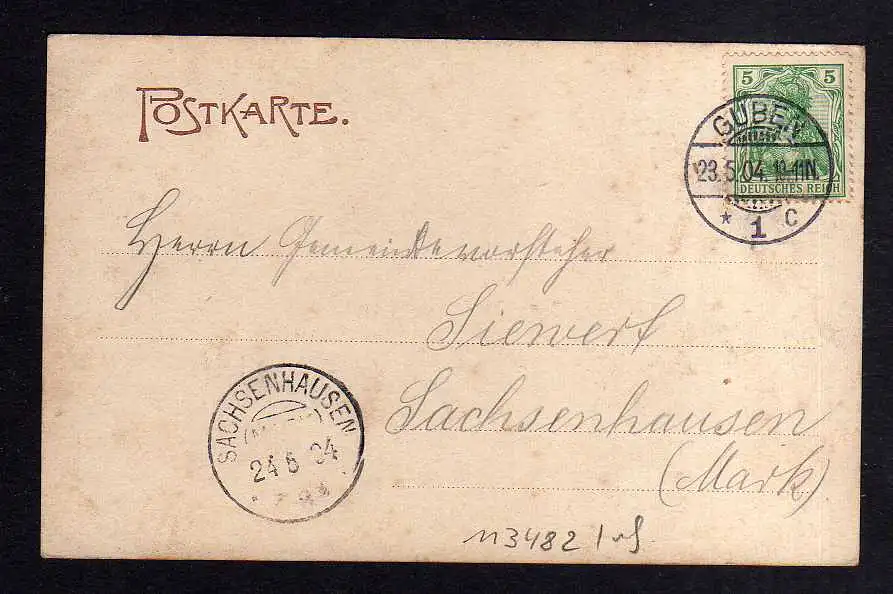 POSTKARTE.
5 5
DEUTSCHES REICH
GUBEN
23.5.04.10-11N.
* 1 c
Herrn Gemeindevorsteher
Siewert
Sachsenhausen
(Mark)
SACHSENHAUSEN
24 5 04
113482